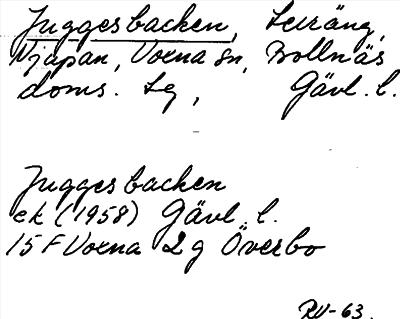 Juggesbacken, Leiräng,
Njapan, Voxna sn, Bollnäs
doms. Lg, Gävl. l.
Juggesbacken
ek (1958) Gävl. l.
15 F Voxna 2 g Överbo
RU-63.